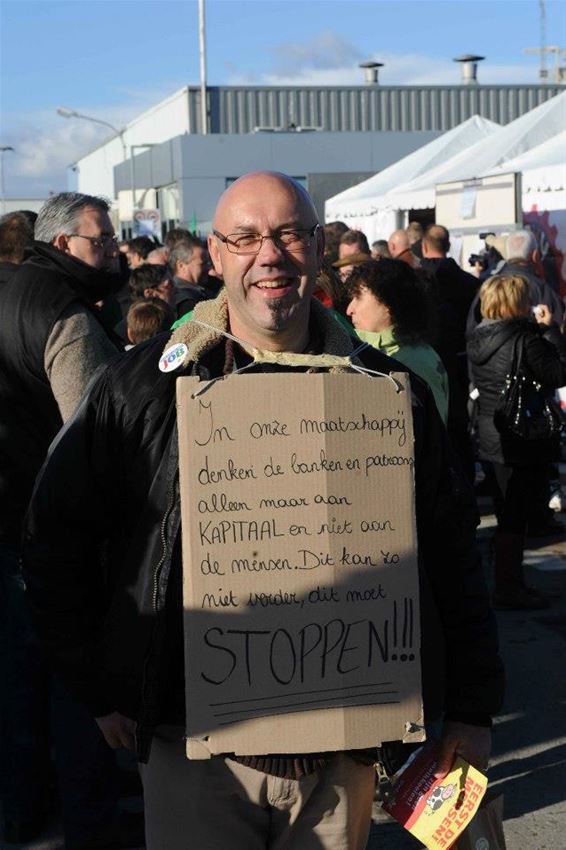 In onze maatschappij
denken de banken en patroons
alleen maar aan
KAPITAAL en niet aan
de mensen. Dit kan zo
niet verder, dit moet
STOPPEN!!!
JOB
EERST DE
MENSEN!